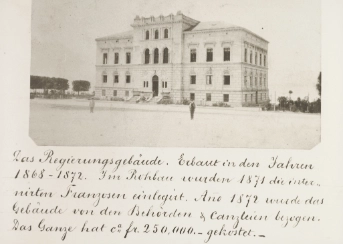 Das Regierungsgebäude. Erbaut in den Jahren
1868-1872. Im Rohbau wurden 1871 die inter-
nirten Franzosen einlogirt. Ano 1872 wurde das
Gebäude von den Behörden & Canzleien bezogen.
Das Ganze hat ca fr. 250,000.- gekostet.-